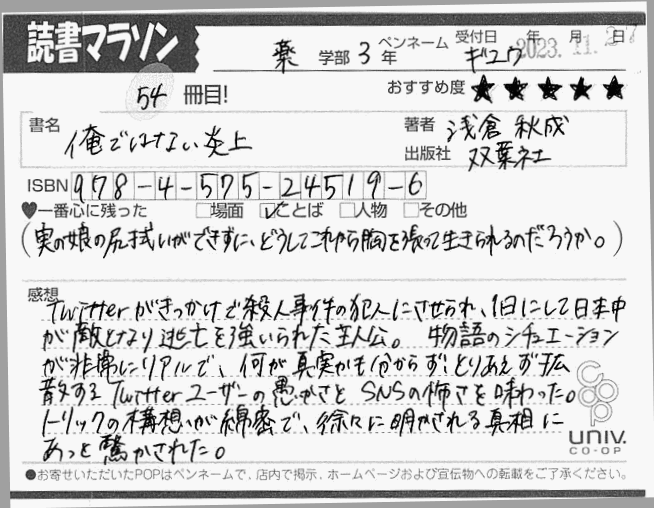 読書マラソン
薬 学部 3 年 ペンネーム ギユウ 受付日 年 月 日 2023.11.27
54 冊目! おすすめ度 ★★★★★
書名 俺ではない炎上
著者 浅倉 秋成
出版社 双葉社
ISBN 978-4-575-24519-6
♥一番心に残った □場面 ☑ことば □人物 □その他
(実の娘の尻拭いができずに、どうしてこれから胸を張って生きられるのだろうか。)
感想
Twitterがきっかけで殺人事件の犯人にさせられ、1日にして日本中
が敵となり逃亡を強いられた主人公。 物語のシチュエーション
が非常にリアルで、何が真実かも分からず、とりあえず拡
散するTwitterユーザーの愚かさと SNSの怖さを味わった。
トリックの構想が綿密で、徐々に明かされる真相に
あっと驚かされた。
coop
UNIV.
CO-OP
●お寄せいただいたPOPはペンネームで、店内で掲示、ホームページおよび宣伝物への転載をご了承ください。